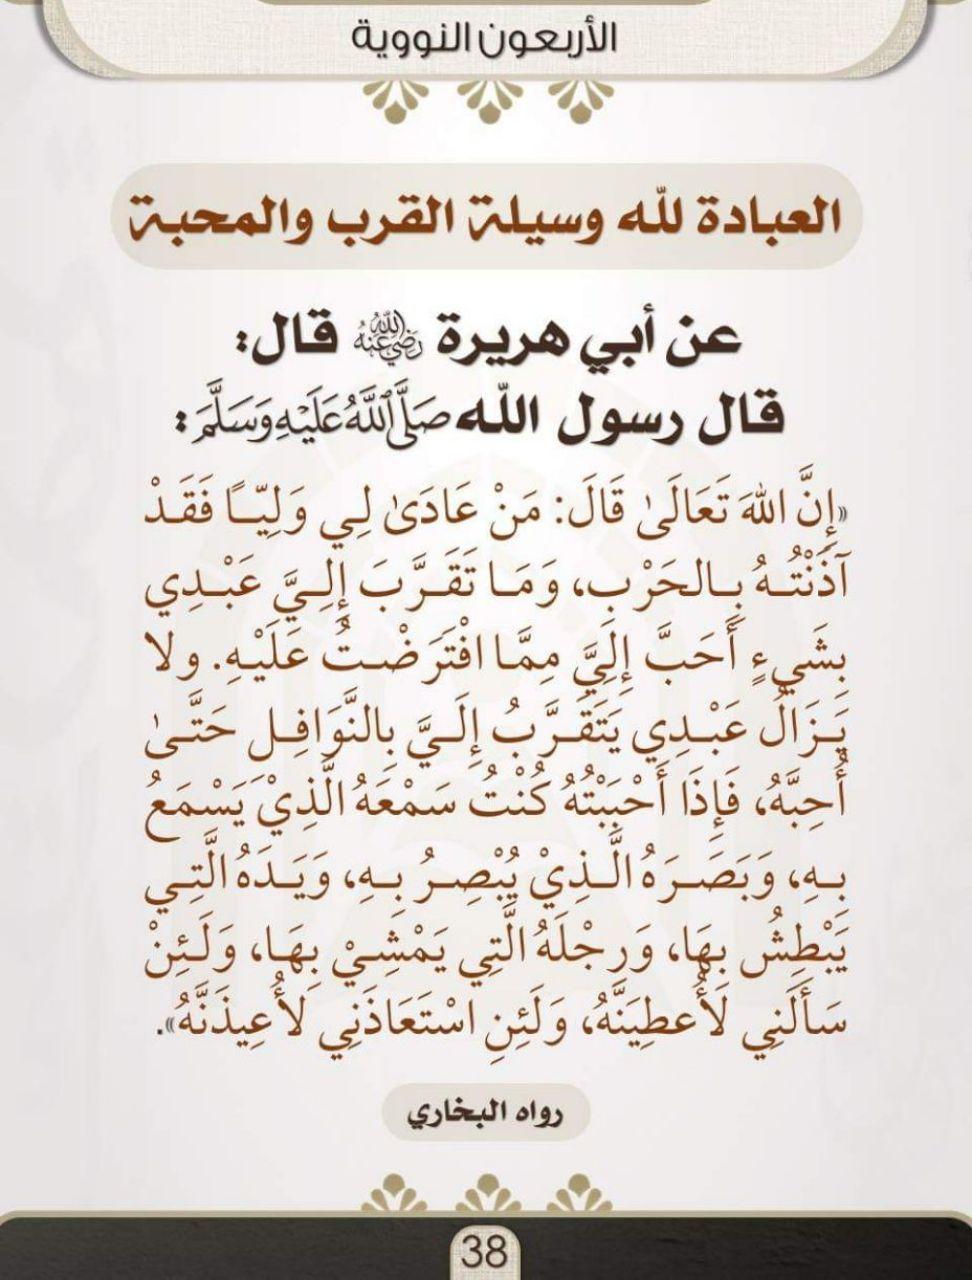 الأربعون النووية
العبادة لله وسيلة القرب والمحبة
عن أبي هريرة رضي الله عنه قال:
قال رسول الله صَلَّى اللَّهُ عَلَيْهِ وَسَلَّمَ:
«إِنَّ اللهَ تَعَالَىٰ قَالَ: مَنْ عَادَىٰ لِي وَلِيّـًا فَقَـدْ
آذَنْتُـهُ بِـالحَرْبِ، وَمَـا تَقَـرَّبَ إِلَـيَّ عَبْـدِي
بِشَيءٍ أَحَبَّ إِلَيَّ مِمَّا افْتَرَضْـتُ عَلَيْـهِ. ولا
يَـزَالُ عَبْـدِي يَتَقَـرَّبُ إِلَـيَّ بِالنَّوَافِـلِ حَتَّـىٰ
أُحِبَّهُ، فَإِذَا أَحْبَبْتُهُ كُنْتُ سَمْعَهُ الَّذِيْ يَسْمَعُ
بِـهِ، وَبَصَـرَهُ الَّـذِيْ يُبْصِـرُ بِـهِ، وَيَـدَهُ الَّتِـي
يَبْطِشُ بِهَا، وَرِجْلَهُ الَّتِي يَمْشِـيْ بِهَـا، وَلَـئِنْ
سَأَلَنِي لَأُعطِيَنَّهُ، وَلَئِنِ اسْتَعَاذَنِي لأُعِيذَنَّهُ».
رواه البخاري
38